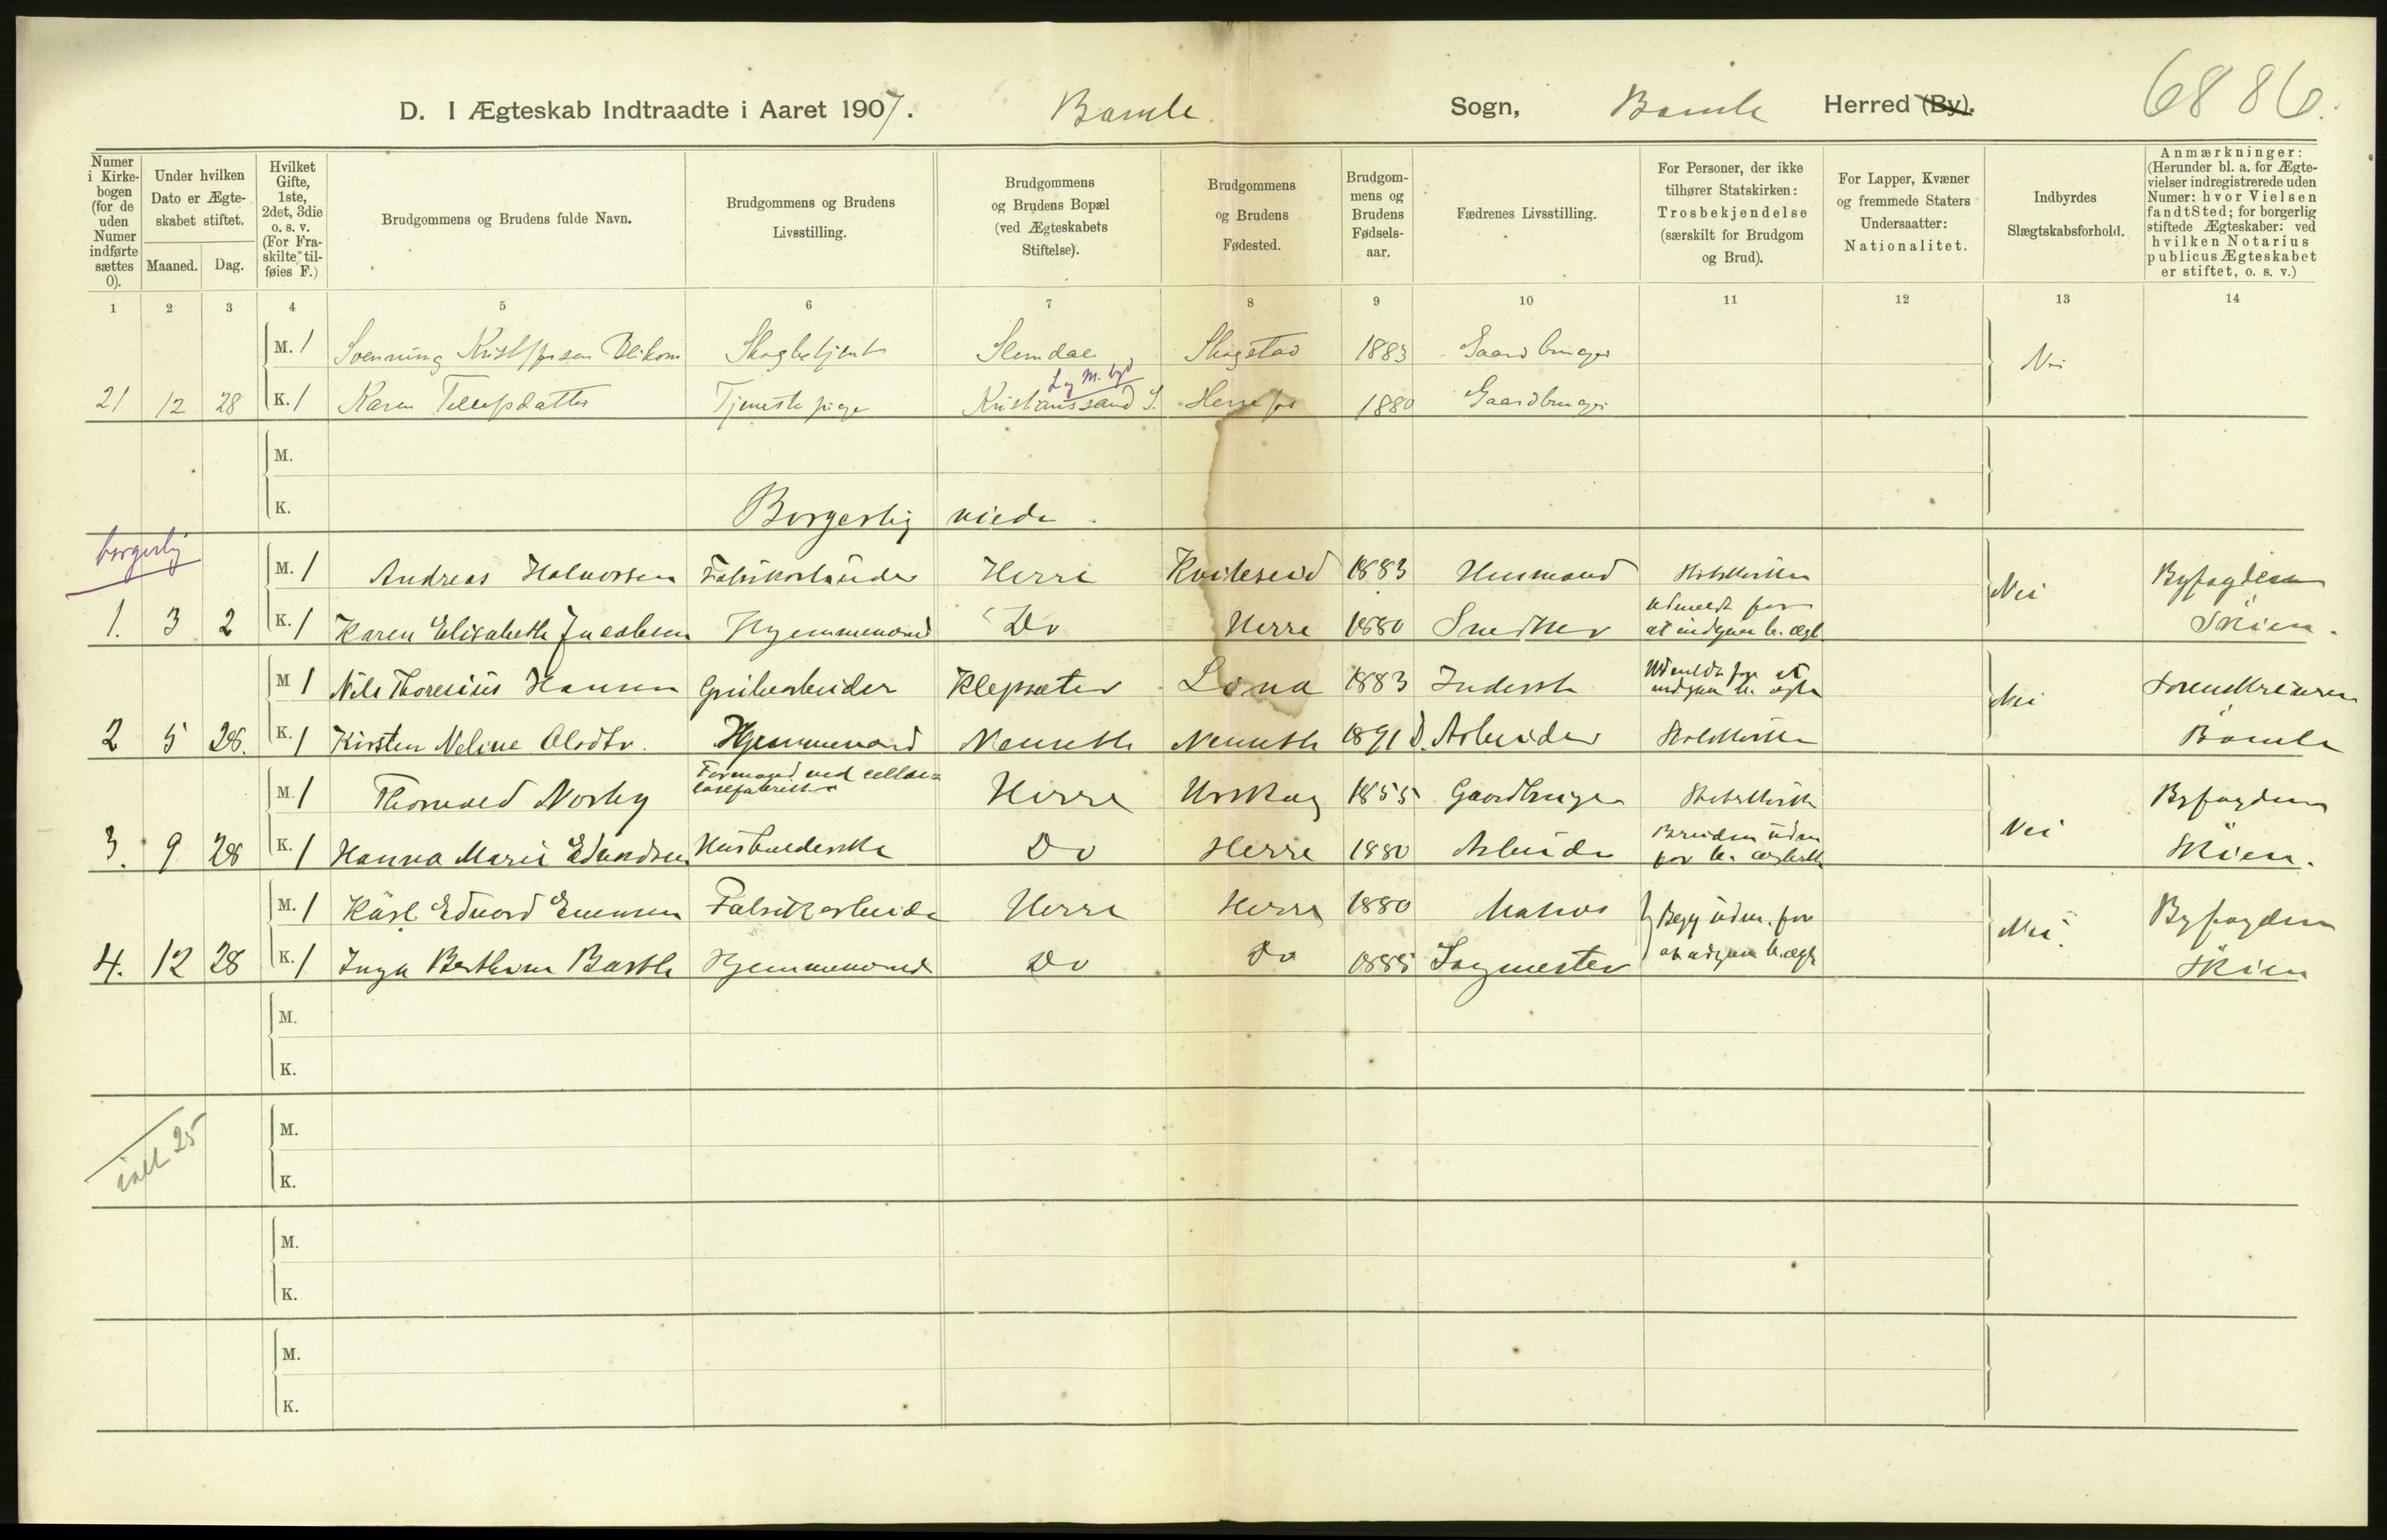 D. I Ægteskab Indtraadte i Aaret 1907. Bamle Sogn, Bamle Herred (By). 6886.
Numer i Kirkebogen (for de uden Numer indførte sættes 0).
Under hvilken Dato er Ægteskabet stiftet.
Maaned. Dag.
Hvilket Gifte, 1ste, 2det, 3die o. s. v. (For Fraskilte tilføies F.)
Brudgommens og Brudens fulde Navn.
Brudgommens og Brudens Livsstilling.
Brudgommens og Brudens Bopæl (ved Ægteskabets Stiftelse).
Brudgommens og Brudens Fødested.
Brudgommens og Brudens Fødselsaar.
Fædrenes Livsstilling.
For Personer, der ikke tilhører Statskirken: Trosbekjendelse (særskilt for Brudgom og Brud).
For Lapper, Kvæner og fremmede Staters Undersaatter: Nationalitet.
Indbyrdes Slægtskabsforhold.
Anmærkninger: (Herunder bl. a. for Ægtevielser indregistrerede uden Numer: hvor Vielsen fandt Sted; for borgerlig stiftede Ægteskaber: ved hvilken Notarius publicus Ægteskabet er stiftet, o. s. v.)
1 2 3 4 5 6 7 8 9 10 11 12 13 14
M. 1 Svenning Skogbetjent Slemdal Skogstad 1883 Gaardbruger Nei
21 12 28 K. 1 Karen Tellefsdatter Tjenestepige Kristianssand S. Herrefos 1880 Gaardbruger
M.
K. Borgerlig viede.
borgerlig
M. 1 Andreas Halvorsen Fabrikarbeider Herre Kviteseid 1883 Husmand Statskirken Nei Byfogden
1. 3 2 K. 1 Karen Elisabeth Jacobsen Hjemmeværd Do Herre 1880 Snedker udmeldt for at indgaa b. ægt. Skien.
M 1 Nils Thoresius Hansen Grubearbeider Klepsæter 1883 Inderst Udmeldt for at indgaa b. ægte Nei Sorenskriveren
2 5 28. K. 1 Kirsten Neline Olsdtr. Hjemmeværd 1891 D. Arbeider Statskirken Bamle
M. 1 Thorvald Norby Formand ved cellulosefabrikken Herre Urskog 1855 Gaardbruger Statskirken Nei Byfogden
3. 9 28 K. 1 Hanna Marie Husholderske Do Herre 1880 Arbeider Bruden udm. for b. ægteskab Skien.
M. 1 Karl Edvard Fabrikarbeider Herre Herre 1880 Matros Begg udm. for Nei. Byfogden
4. 12 28 K. 1 Inga Hjemmeværd Do Do 1885 Sagmester at indgaa b. ægt Skien
M.
K.
ialt 25
M.
K.
M.
K.
M.
K.